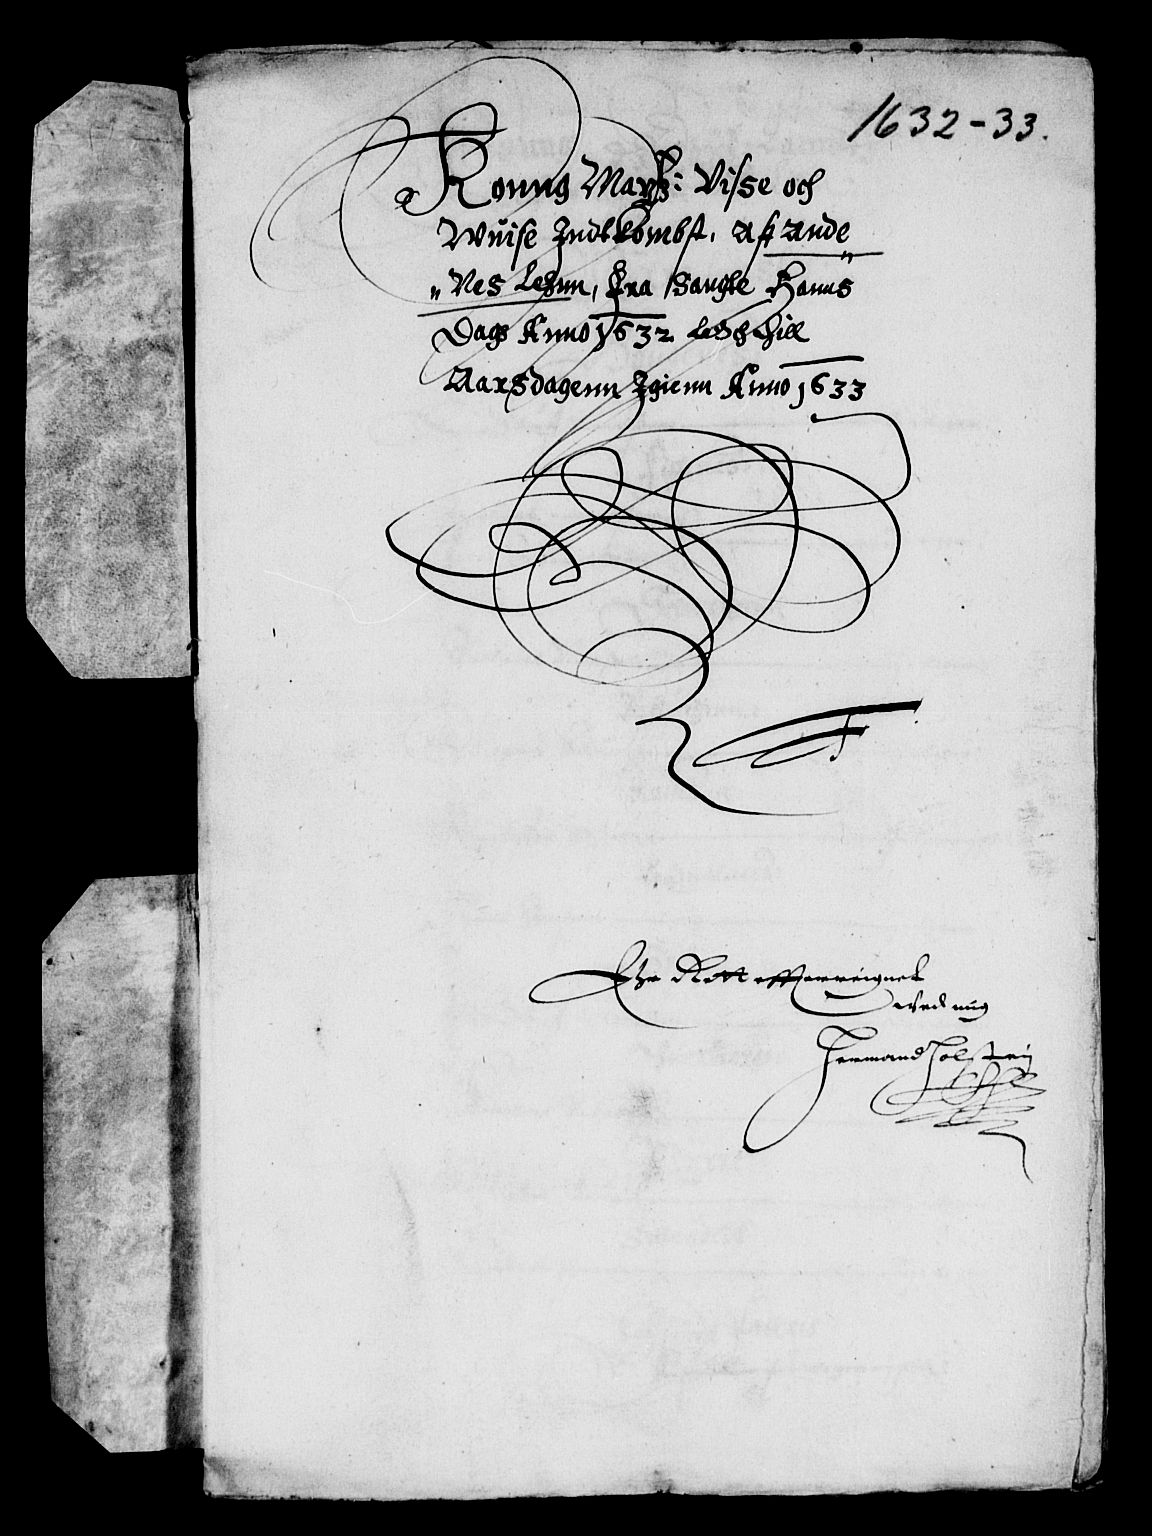 1632-33.
Konng Maytz: Visse och
Wuise Indkombst, Aff Ande
„Nes Lehnn, Fra Sangte Hanns
Dags Anno 1632 och thill
Aarsdagenn Igienn Anno 1633
Rett
ved mig
Hermand Holstein